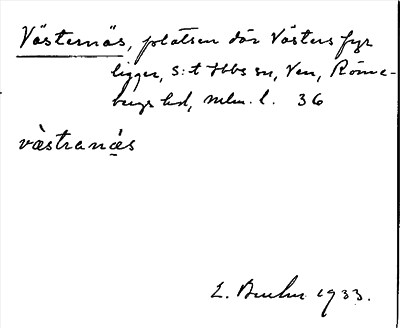 Västernäs, platsen där Västers fyr
ligger, S:t Ibbs sn, Ven, Rönne-
bergs hd, Mlm. l. 36
vàstranä́s
1933.